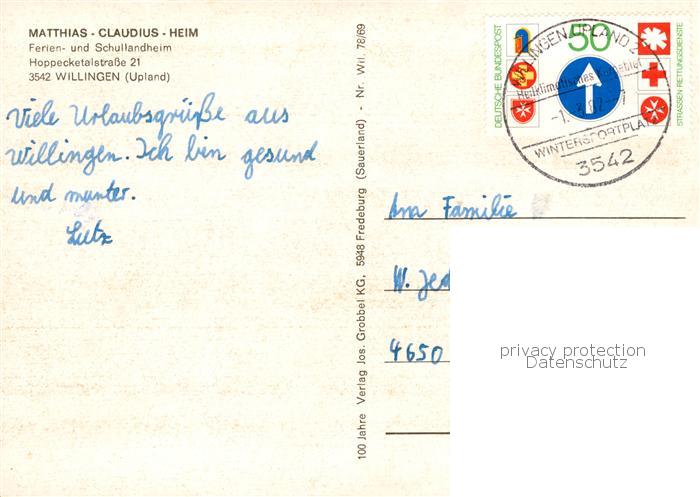 MATTHIAS - CLAUDIUS - HEIM
Ferien- und Schullandheim
Hoppecketalstraße 21
3542 WILLINGEN (Upland)
Viele Urlaubsgrüße aus
Willingen. Ich bin gesund
und munter.
Lutz
100 Jahre Verlag Jos. Grobbel KG, 5948 Fredeburg (Sauerland) - Nr. Wil. 78/69
DEUTSCHE BUNDESPOST
50
STRASSEN-RETTUNGSDIENSTE
WILLINGEN, UPLAND
Heilklimatisches
WINTERSPORTPLATZ
3542
Ana Familie
W.
4650
privacy protection
Datenschutz